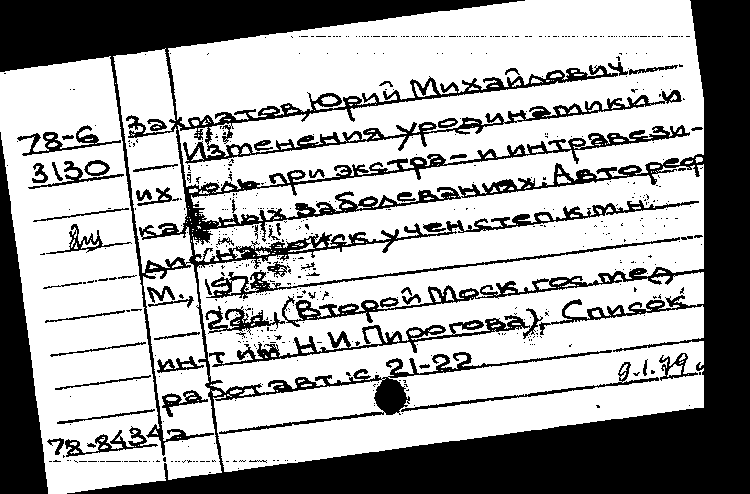 78-6
3130
Захматов, Юрий Михайлович
Изменения уродинатики и
их роль при экстра- и интравези-
кальных заболеваниях: Автореф
дис. на соиск. учен. степ. к.м.н.
М., 1978
22с., (Второй Моск. гос. мед
ин-т им. Н.И. Пирогова), Список
работ авт.: с. 21-22
9.1.79
78-8434а